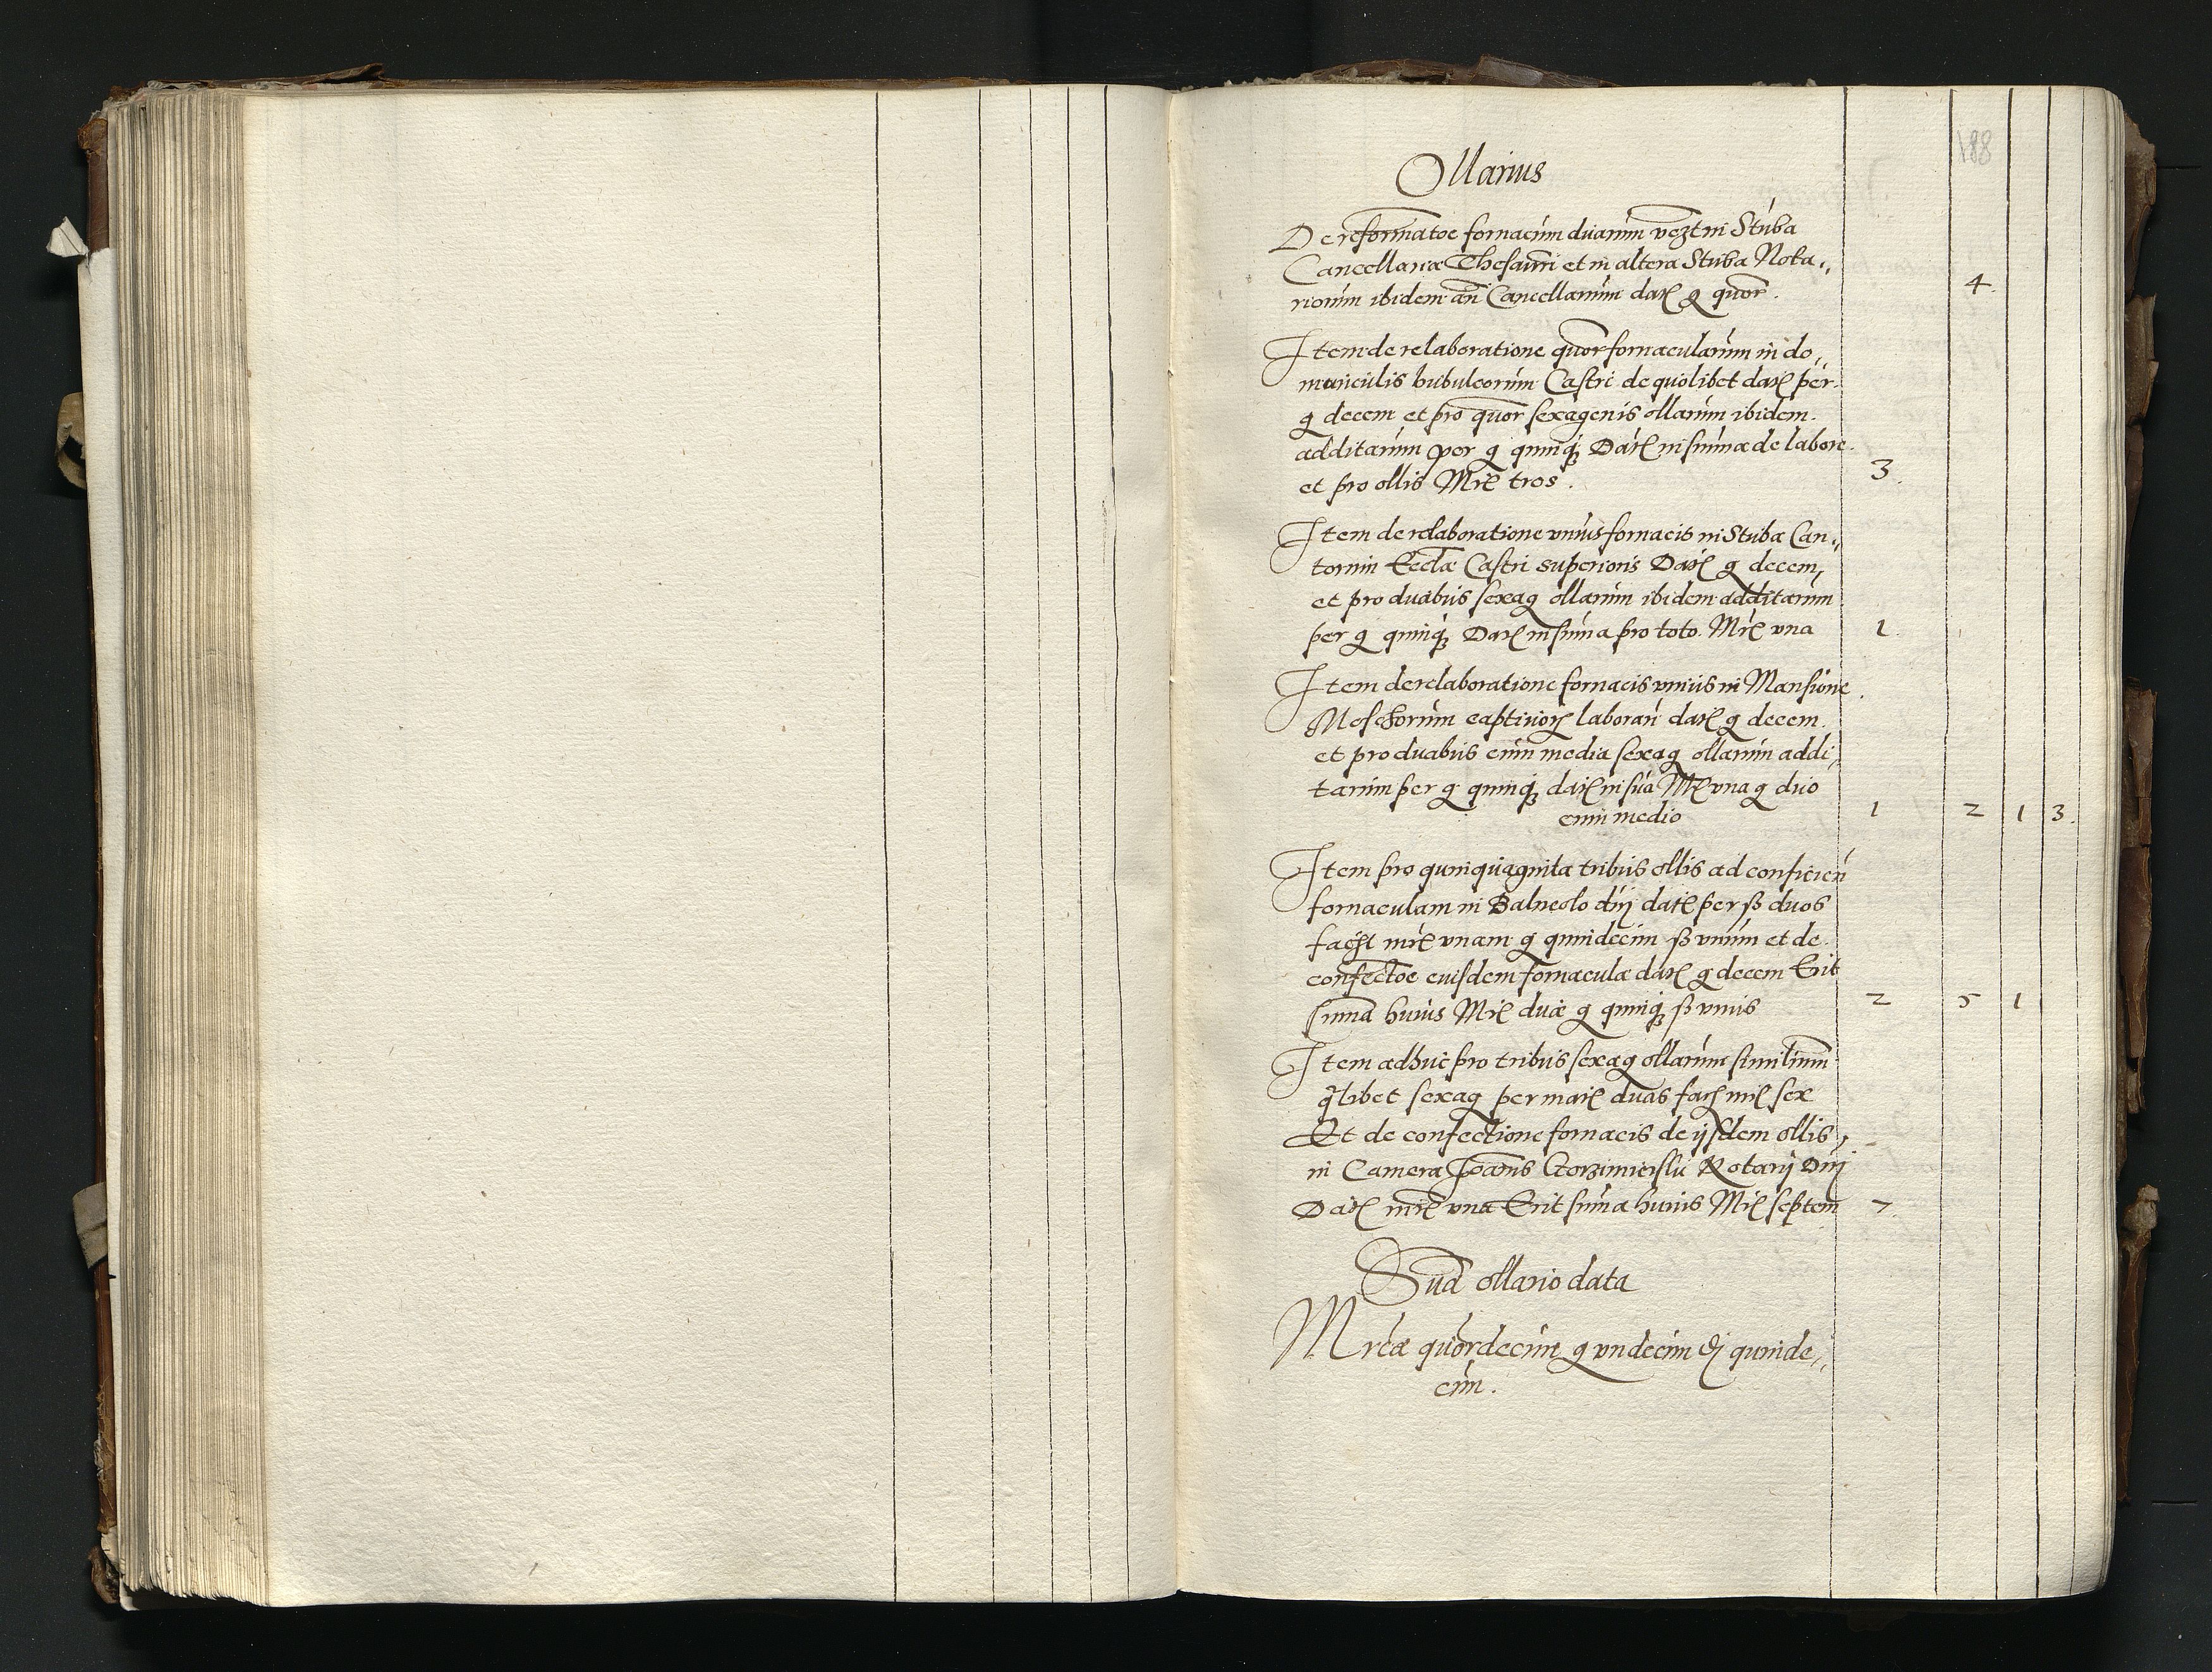 188
Ollarius
De reformatoe fornacum duarum vczt in Stuba
Cancellariæ Thesauri et in altera Stuba Nota„
riorum ibidem an Cancellarium dat g quor. 4.
Item de relaboratione quor fornacularum in do„
munculis bubulcorum Castri de quolibet dat per
g decem et pro quor sexagenis ollarum ibidem
additarum per g quinq Dat in suma de labore
et pro ollis Mr tres. 3.
Item de relaboratione vnius fornacis in Stuba Can„
torum Ecclæ Castri superioris Dat g decem,
et pro duabus sexag ollarum ibidem additarum
per g quinq Dat in suma pro toto Mr vna 1.
Item de relaboratione fornacis vnius in Mansione
Moschorum captiuor laboran dat g decem
et pro duabus cum media sexag ollarum addi„
tarum per g quinq dat in sua Mr vna g duo
cum medio 1 2 1 3.
Item pro quinquaginta tribus ollis ad conficien
fornaculam in Balneolo dni dat per ß duos
facit mr vnam g quindecim ß vnum et de
confectoe eiusdem fornaculæ dat g decem Erit
suma huius Mr duæ g quinq ß vnus 2 5 1
Item adhuc pro tribus sexag ollarum similium
qlibet sexag per mar duas fac mr sex
Et de confectione fornacis de ijsdem ollis,
in Camera Joanis Notarij Dni
Dat mr vna Erit suma huius Mr septem 7.
Sua ollario data
Mrcæ quordecim g vndecim quinde„
cim.